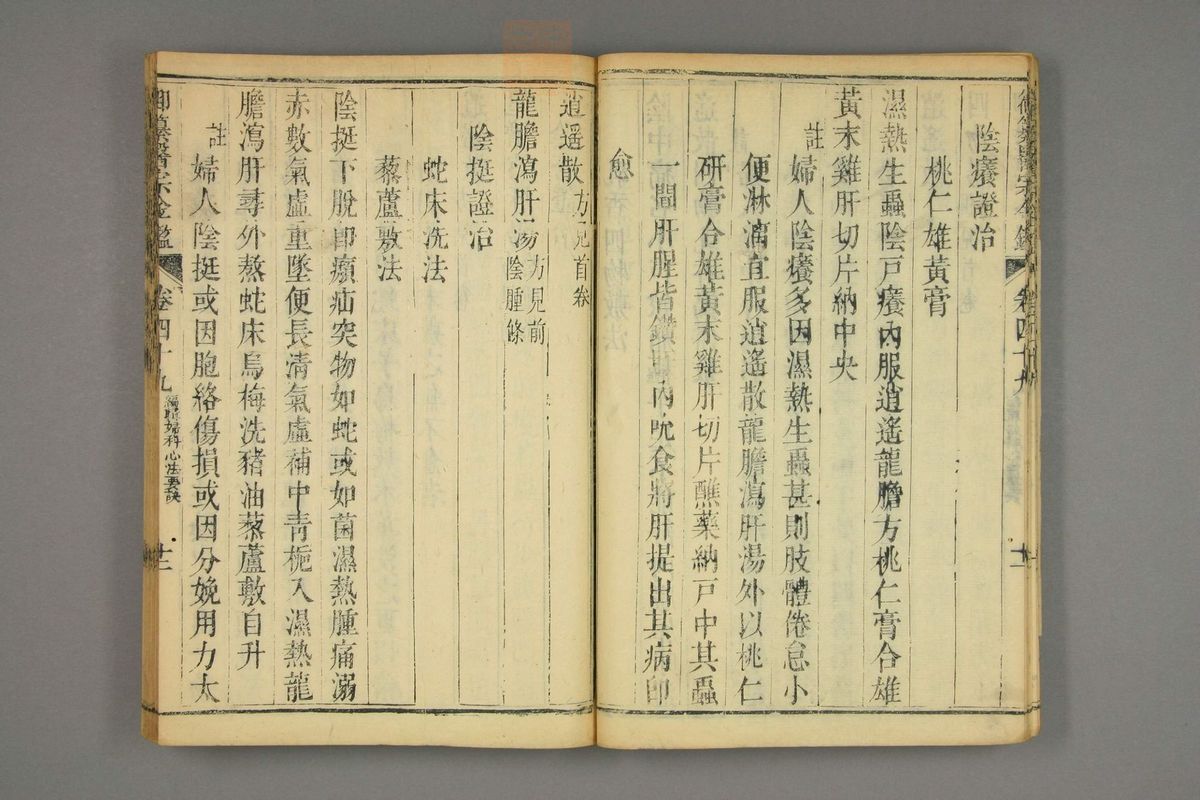 陰癢證治
桃仁雄黃膏
濕熱生蟲陰戶癢內服逍遙龍膽方桃仁膏合雄
黃末雞肝切片納中央
註婦人陰癢多因濕熱生蟲甚則肢體倦怠小
便淋漓宜服逍遙散龍膽瀉肝湯外以桃仁
研膏合雄黃末雞肝切片醮藥納戶中其蟲
一聞肝腥皆鑽肝內吮食將肝提出其病卽
愈
逍遙散方見首卷
龍膽瀉肝湯方見前
陰腫條
陰挺證治
蛇床洗法
藜蘆敷法
陰挺下脫卽㿗疝突物如蛇或如菌濕熱腫痛溺
赤數氣虛重墜便長清氣虛補中青梔入濕熱龍
膽瀉肝尋外熬蛇床烏梅洗豬油藜蘆敷自升
註婦人陰挺或因胞絡傷損或因分娩用力太
御纂醫宗金鑑
卷四十九
編輯婦科心法要訣